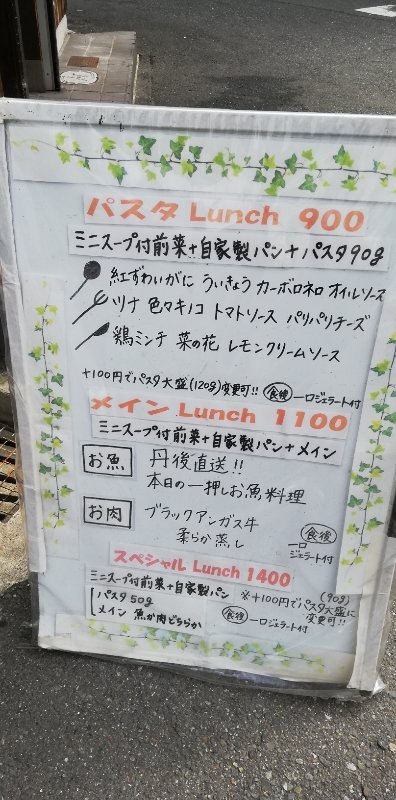 パスタ Lunch 900
ミニスープ付前菜+自家製パン+パスタ90g
紅ずわいがに ういきょう カーボロネロ オイルソース
ツナ 色マキノコ トマトソース パリパリチーズ
鶏ミンチ 菜の花 レモンクリームソース
+100円でパスタ大盛(120g)変更可!! 食後 一口ジェラート付
メイン Lunch 1100
ミニスープ付前菜+自家製パン+メイン
お魚 丹後直送!!
本日の一押しお魚料理
お肉 ブラックアンガス牛
柔らか蒸し
食後
一口
ジェラート付
スペシャル Lunch 1400
ミニスープ付前菜+自家製パン
パスタ50g
メイン 魚か肉どちらか
(90g)
※+100円でパスタ大盛に
変更可!!
食後 一口ジェラート付